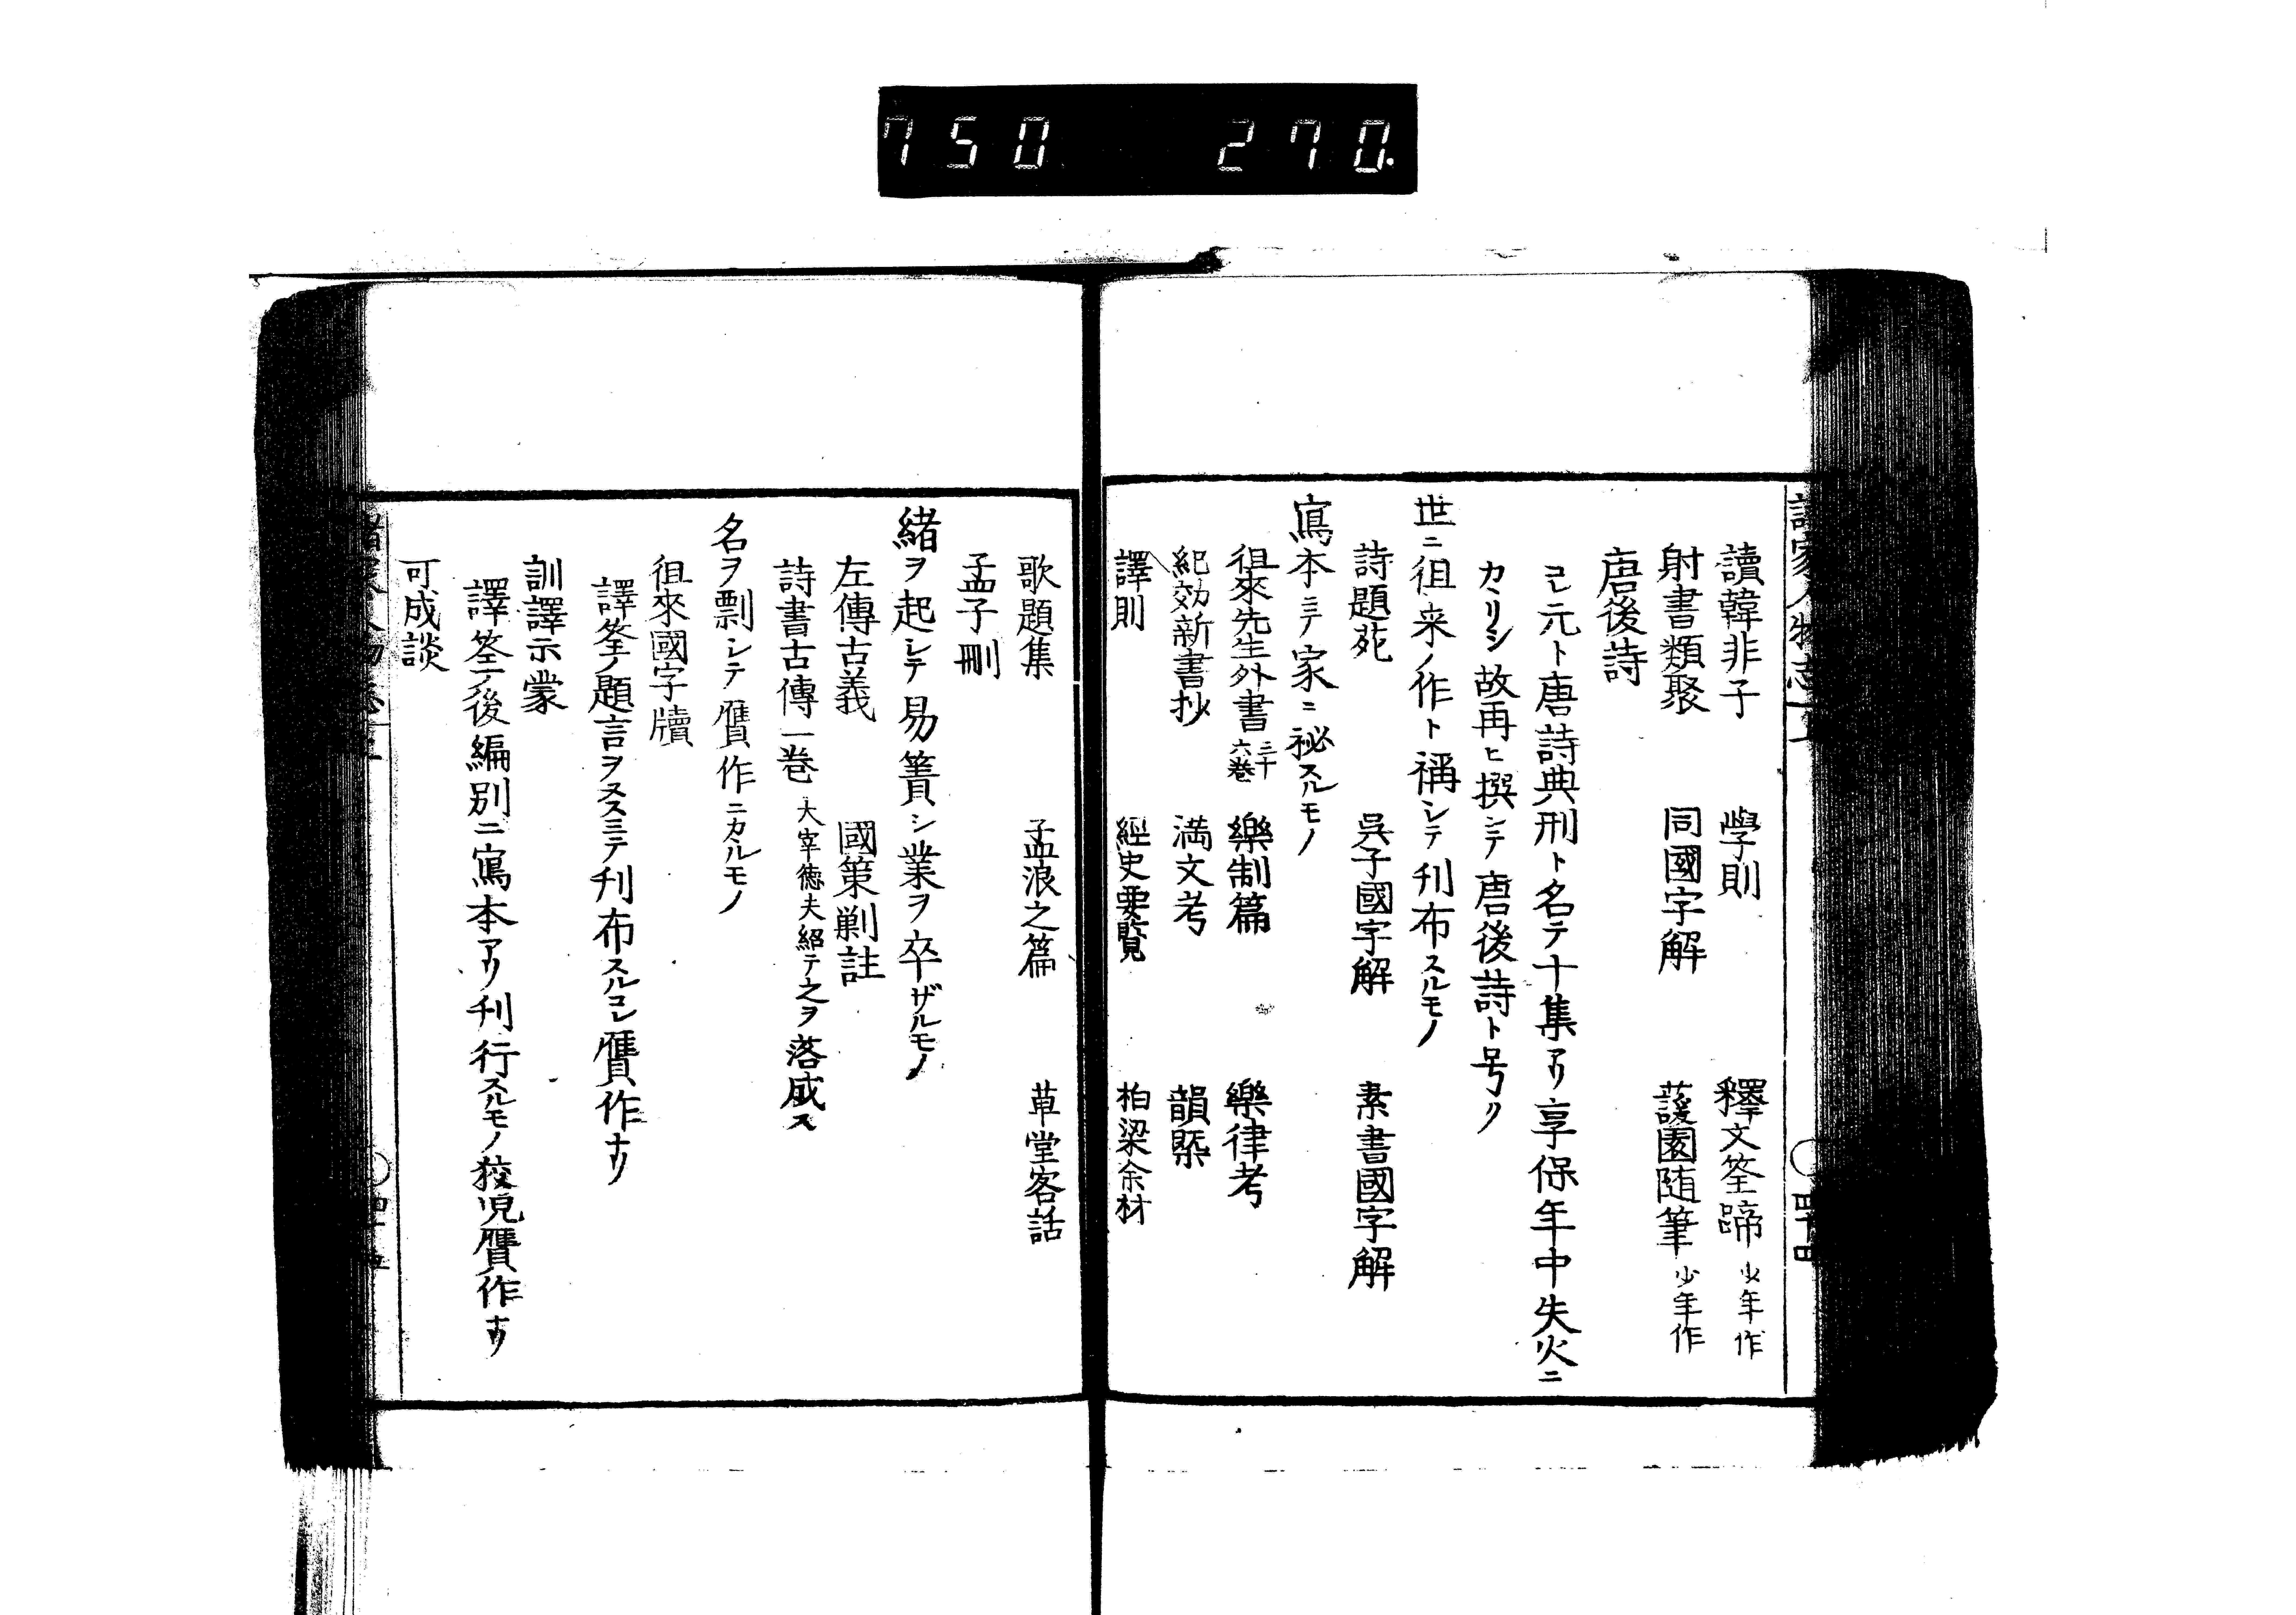 750 270.
讀韓非子 學則 釋文筌蹄 少年作
射書類聚 同國字解 蘐園随筆 少年作
唐後詩
コレ元ト唐詩典刑ト名テ十集アリ享保年中失火ニ
カヽリシ故再ヒ撰シテ唐後詩ト号ク
世ニ徂来ノ作ト稱シテ刊布スルモノ
詩題苑 吳子國字解 素書國字解
寫本ニテ家ニ祕スルモノ
徂來先生外書 三十六巻 樂制篇 樂律考
紀効新書抄 満文考 韻槩
譯則 經史要覧 柏梁余材
歌題集 孟浪之篇 草堂客話
孟子刪
緒ヲ起シテ易簀シ業ヲ卒ザルモノ
左傳古義 國策劖註
詩書古傳一巻 大宰徳夫紹テ之ヲ落成ス
名ヲ剽シテ贋作ニカヽルモノ
徂來國字牘
譯筌ノ題言ヲヌスミテ刊布スルコレ贋作ナリ
訓譯示蒙
譯筌ノ後編別ニ寫本アリ刊行スルモノ狡児贋作ナリ
可成談